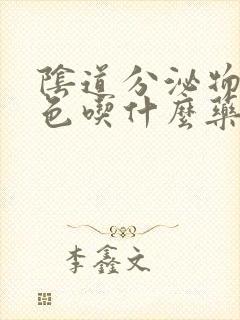 陰道分泌物
色喫什麼藥
李鑫文